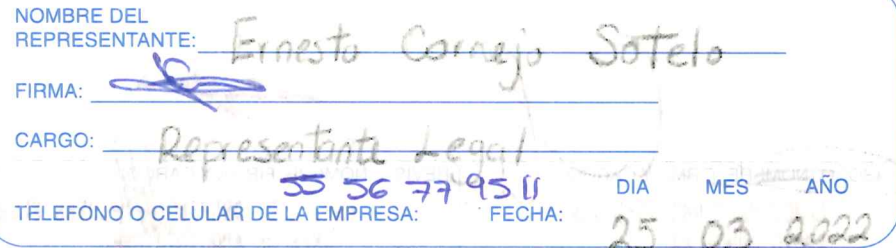 NOMBRE DEL
REPRESENTANTE: Ernesto Cornejo Sotelo
FIRMA:
CARGO: Representante Legal
55 56 77 95 11
DIA MES AÑO
TELEFONO O CELULAR DE LA EMPRESA: FECHA: 25 03 2022